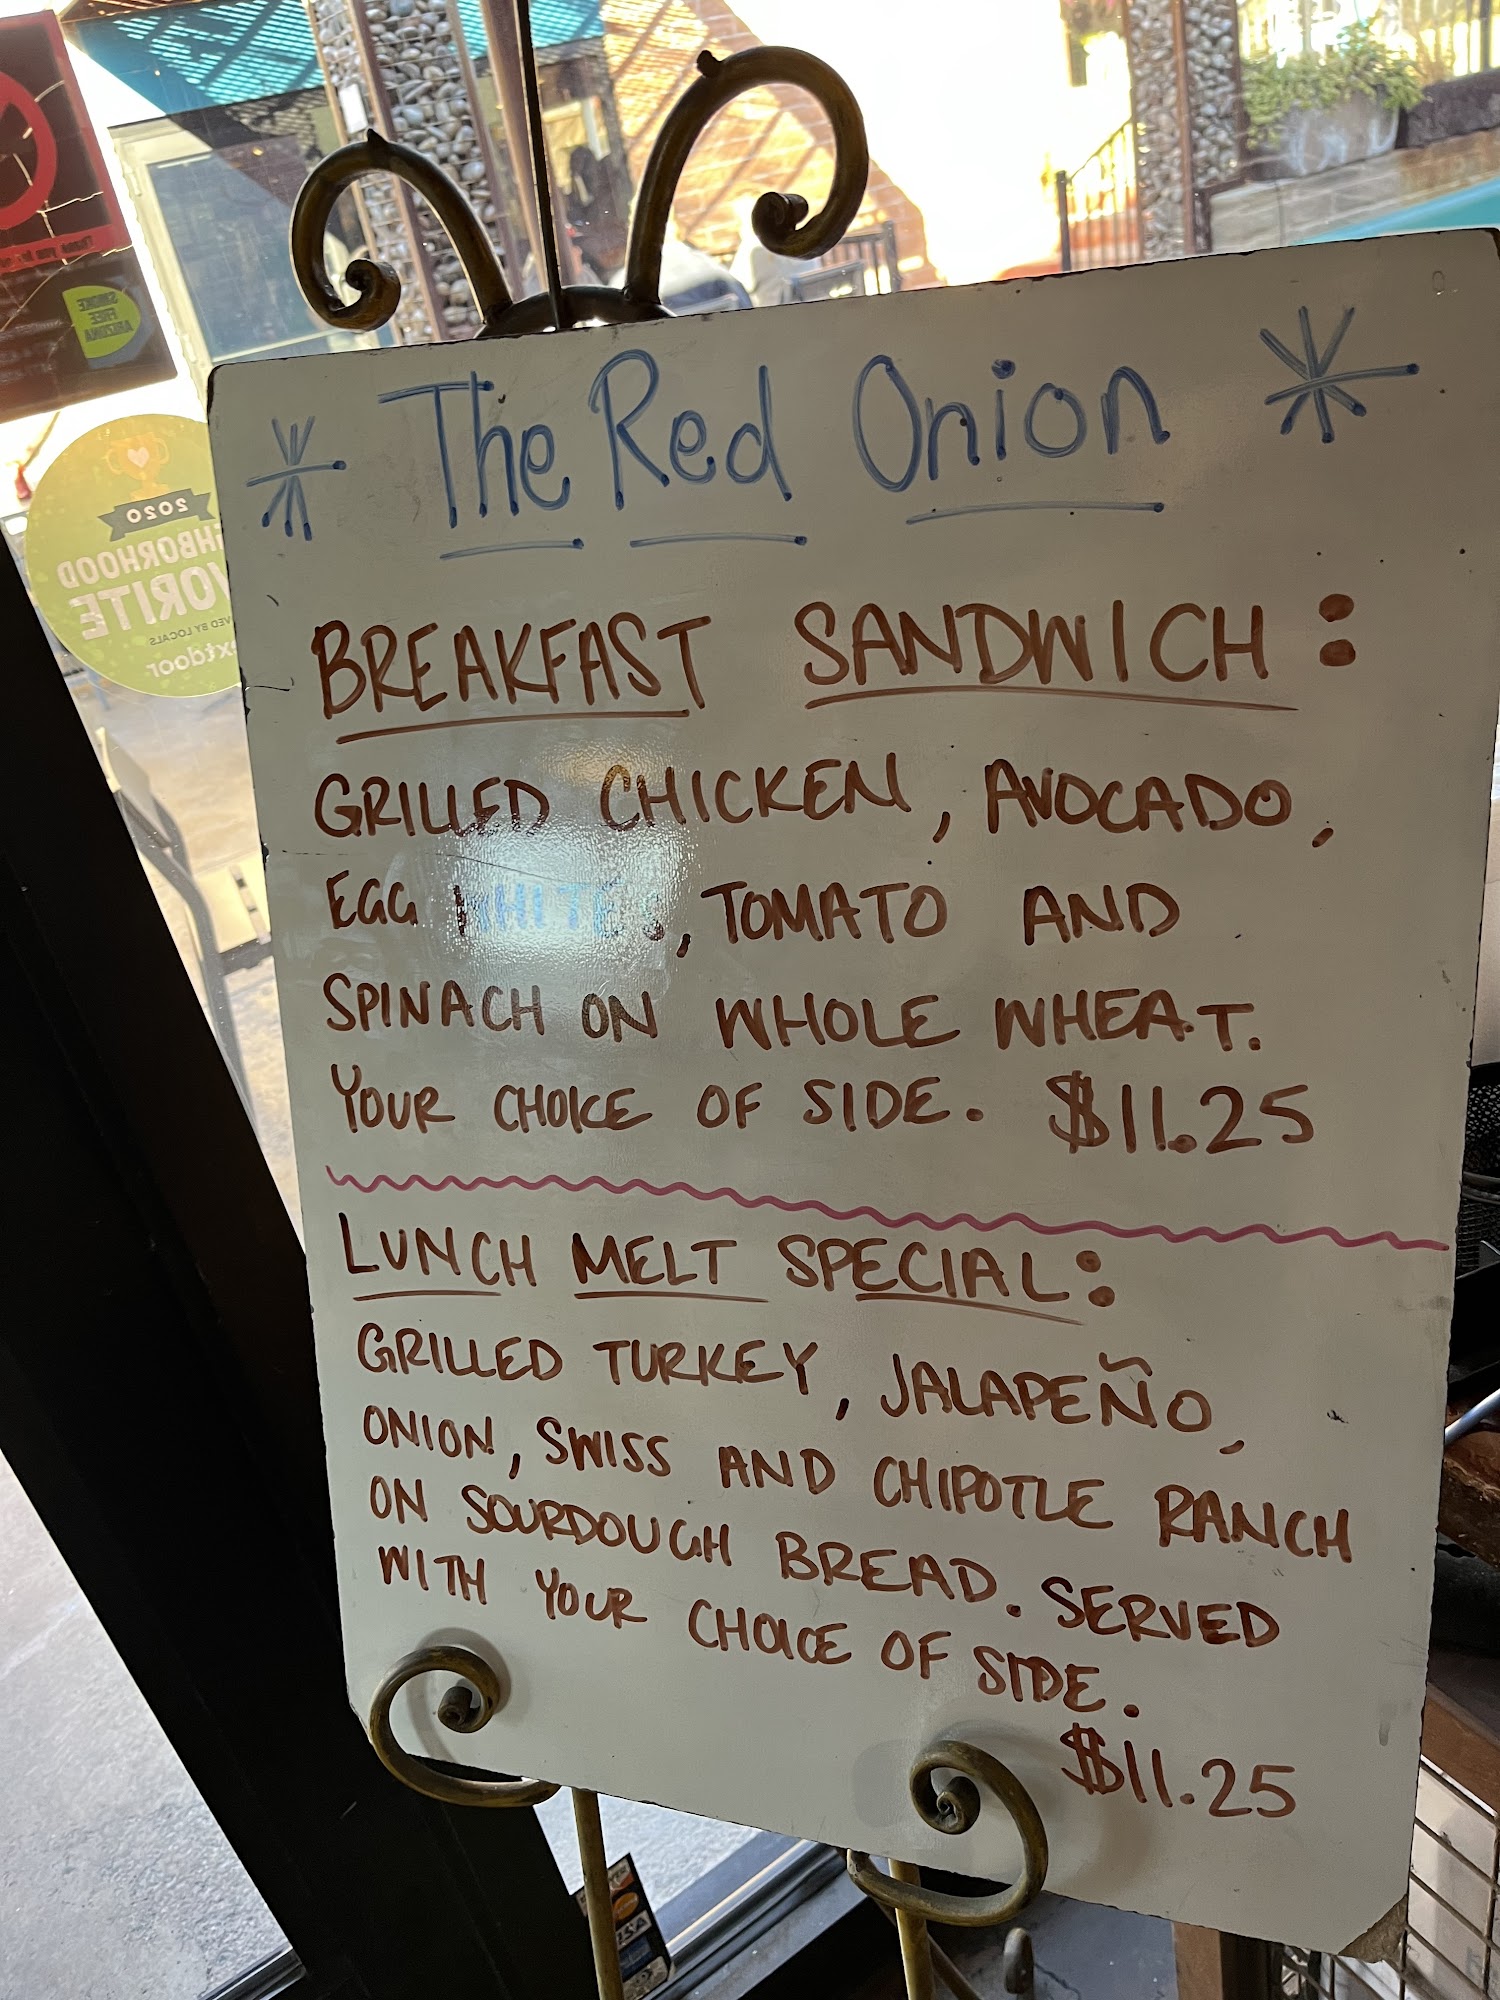 The Red Onion
BREAKFAST SANDWICH:
GRILLED CHICKEN, AVOCADO,
EGG WHITES, TOMATO AND
SPINACH ON WHOLE WHEAT.
YOUR CHOICE OF SIDE. $11.25
LUNCH MELT SPECIAL:
GRILLED TURKEY, JALAPEÑO,
ONION, SWISS AND CHIPOTLE RANCH
ON SOURDOUGH BREAD. SERVED
WITH YOUR CHOICE OF SIDE.
$11.25
SMOKE
FREE
ARIZONA
2020
HBORHOOD
VORITE
VED BY LOCALS
extdoor
VISA